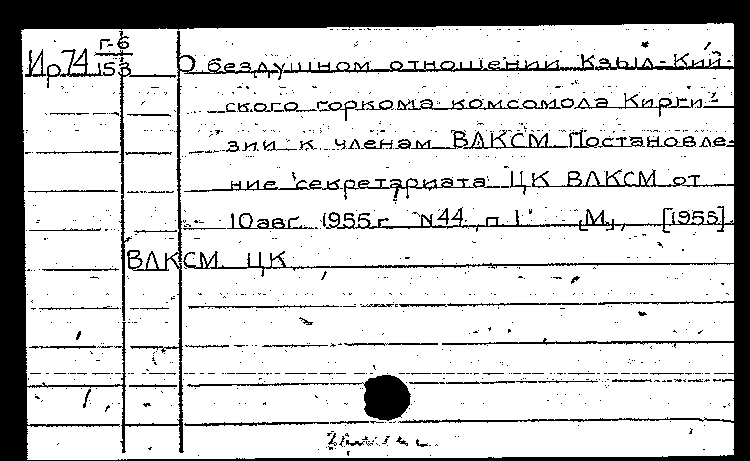 Ир74 г-6/153 О бездушном отношении Кзыл-Кий-
ского горкома комсомола Кирги-
зии к членам ВЛКСМ. Постановле-
ние секретариата ЦК ВЛКСМ от
10 авг. 1955 г. N44, п. 1. [М], [1955]
ВЛКСМ. ЦК